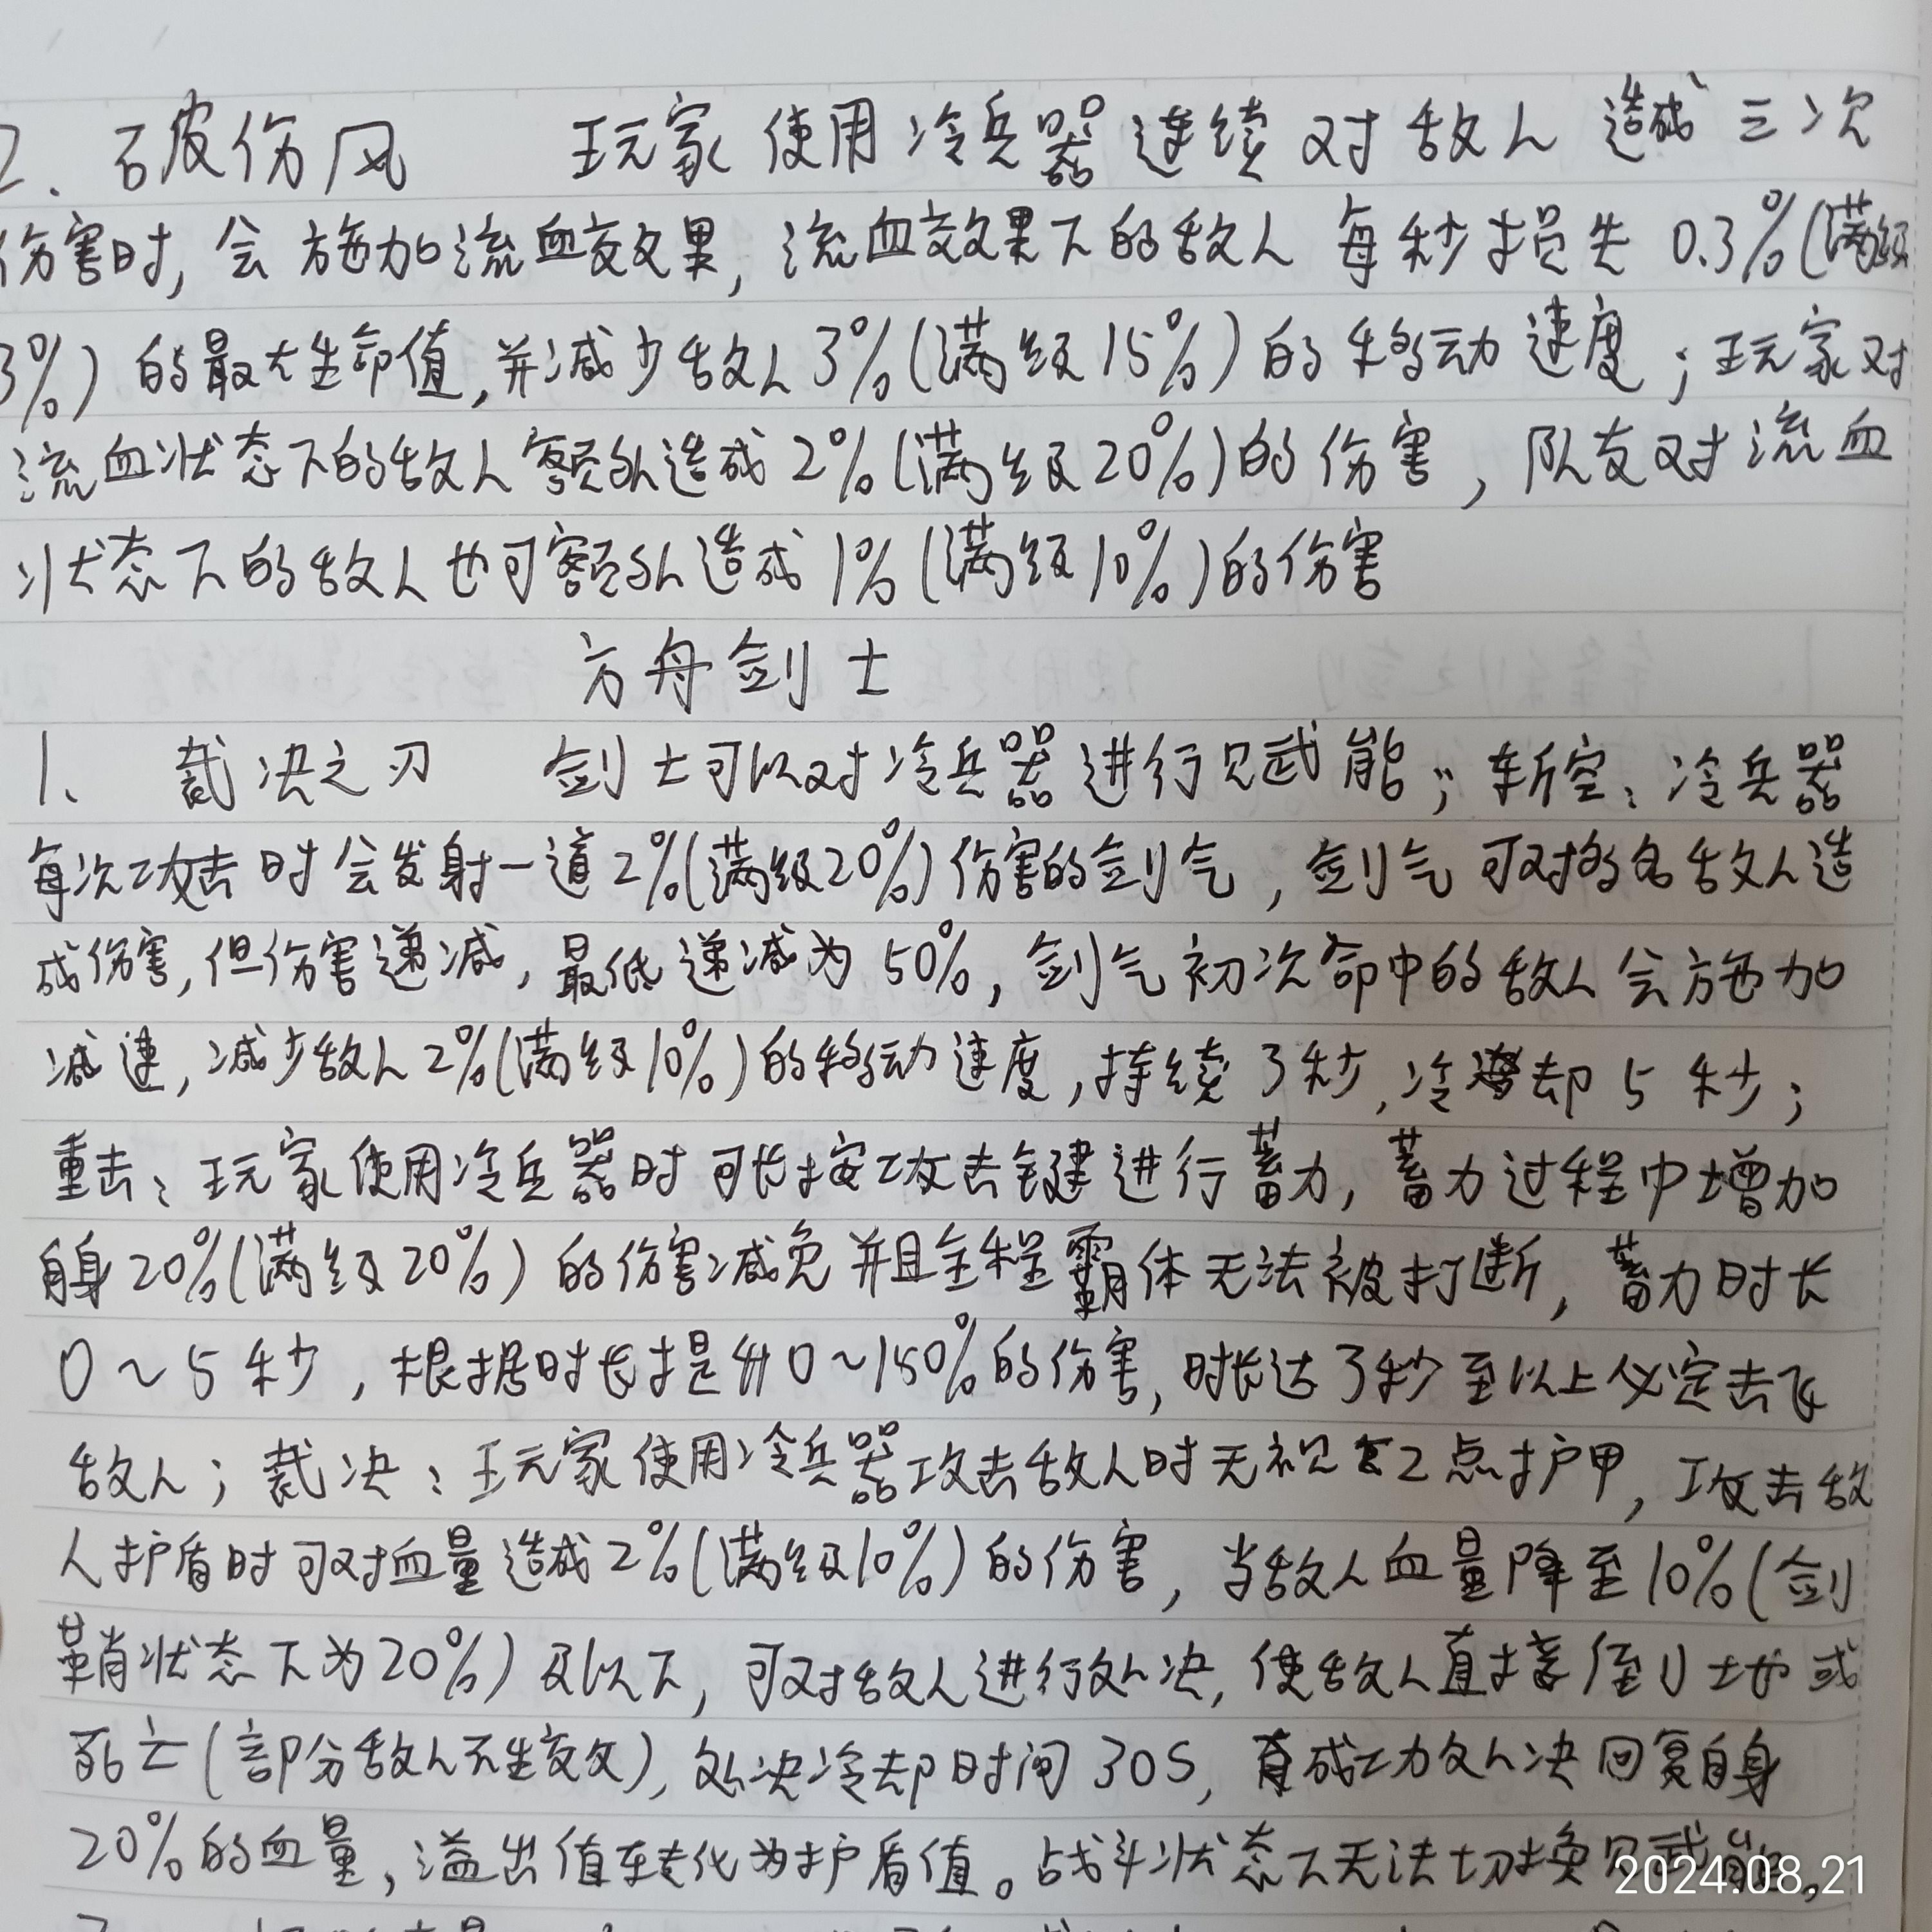 2. 破伤风 玩家使用冷兵器连续对敌人造成三次
伤害时,会施加流血效果,流血效果下的敌人每秒损失0.3%(满级
3%)的最大生命值,并减少敌人3%(满级15%)的移动速度;玩家对
流血状态下的敌人额外造成2%(满级20%)的伤害,队友对流血
状态下的敌人也可额外造成1%(满级10%)的伤害
方舟剑士
1、裁决之刃 剑士可以对冷兵器进行赋能;斩空:冷兵器
每次攻击时会发射一道2%(满级20%)伤害的剑气,剑气可对多名敌人造
成伤害,但伤害递减,最低递减为50%,剑气初次命中的敌人会施加
减速,减少敌人2%(满级10%)的移动速度,持续3秒,冷却5秒;
重击:玩家使用冷兵器时可长按攻击键进行蓄力,蓄力过程中增加
自身20%(满级20%)的伤害减免并且全程霸体无法被打断,蓄力时长
0~5秒,根据时长提升0~150%的伤害,时长达3秒至以上必定击飞
敌人;裁决:玩家使用冷兵器攻击敌人时无视2点护甲,攻击敌
人护盾时可对血量造成2%(满级10%)的伤害,当敌人血量降至10%(剑
鞘状态下为20%)及以下,可对敌人进行处决,使敌人直接倒地或
死亡(部分敌人不生效),处决冷却时间30S,成功处决回复自身
20%的血量,溢出值转化为护盾值。战斗状态下无法切换赋能,
2024.08.21